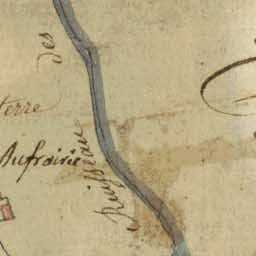 des
terre
Aufrairie
Ruisseau